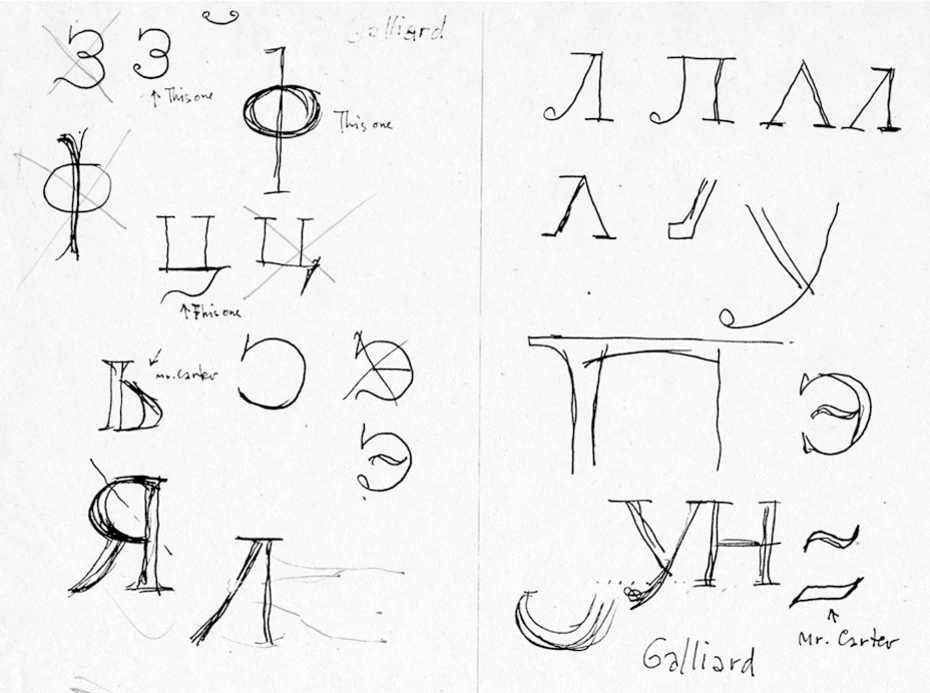 Galliard
З З
↑ This one
Ф
This one
Ф
Ц Ц
↑ This one
Ь
↙ Mr. Carter
Э
Э
Я
Л
Л Л Л Л
Л
У
П
Э
УН
~
↑
Mr. Carter
Galliard